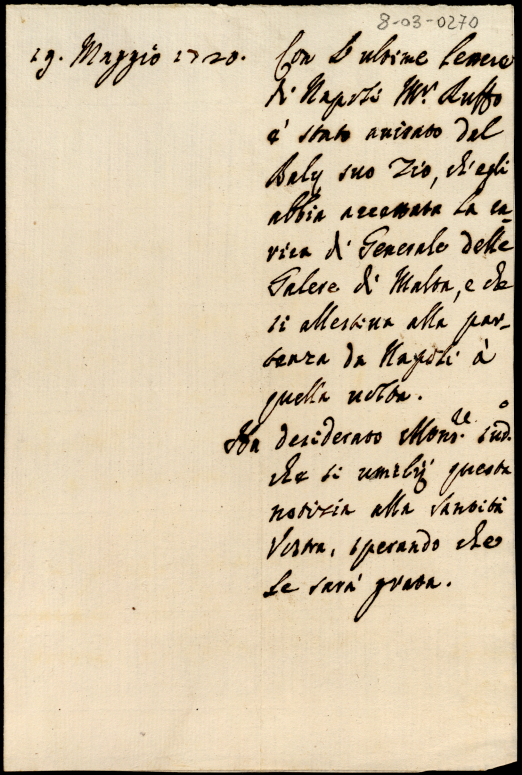 8-03-0270
19. Maggio 1720.
Con L'ultime Lettere
di Napoli Mr. Ruffo
è stato avisato dal
Baly suo Zio, ch'egli
abbia accettata la ca-
rica di Generale delle
Galere di Malta, e che
si allestiva alla par-
tenza da Napoli à
quella volta.
Ha desiderato Monre. sudo.
che si umilij questa
notizia alla Santità
Vostra, sperando che
Le sarà grata.